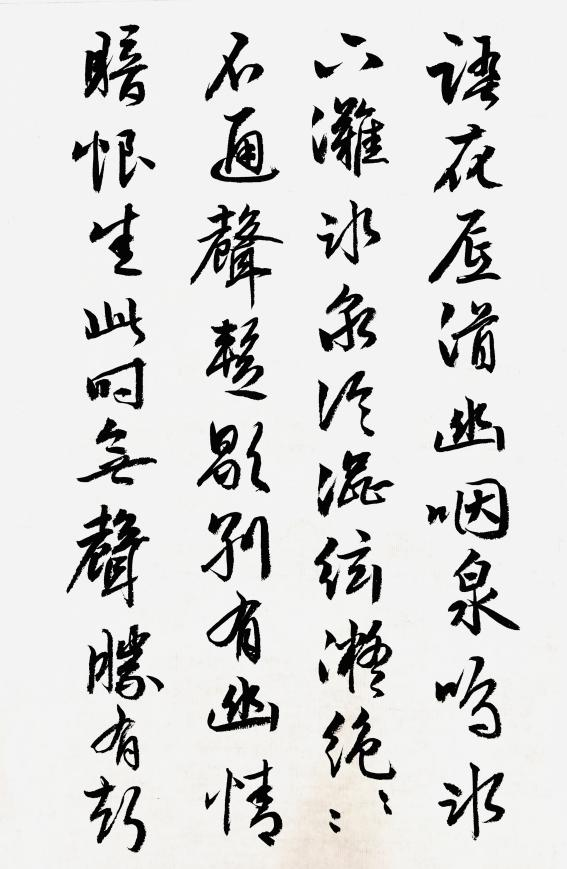 語花底滑幽咽泉鳴冰
下灘冰泉冷澀絃凝絕〻〻
不通聲暫歇別有幽情
暗恨生此時無聲勝有聲